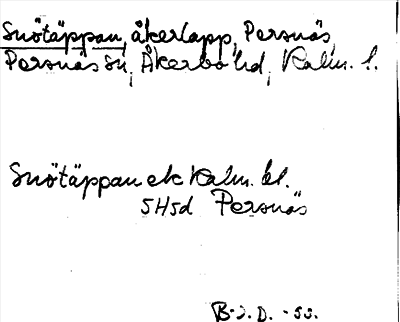 Snötäppan, åkerlapp, Persnäs,
Persnäs sn, Åkerbo hd, Kalm. l.
Snötäppan ek Kalm. bl.
5H5d Persnäs
B-J. D. -53.